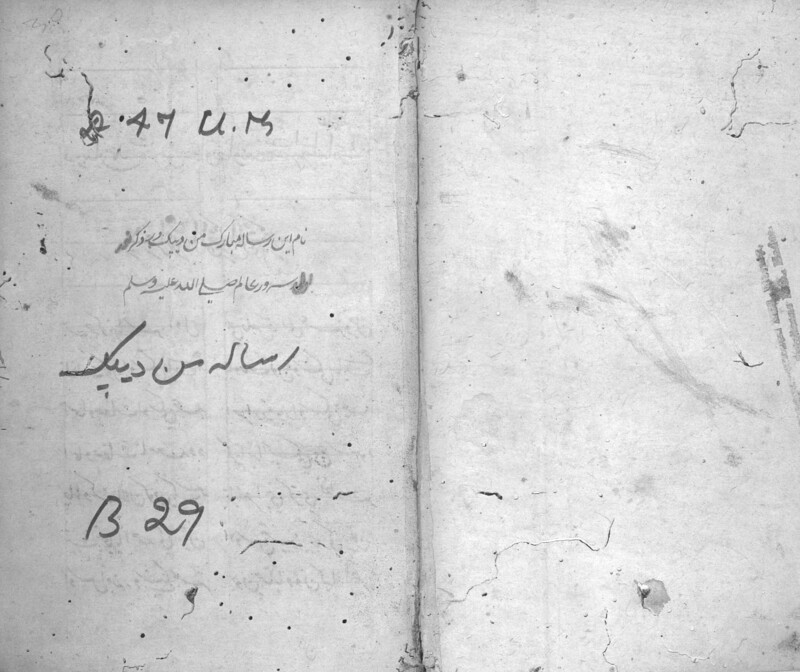 47 U.M
نام این رساله مبارک من دیپک در ذکر
سرور عالم صلی الله علیه وسلم
رساله من دیپک
B 29